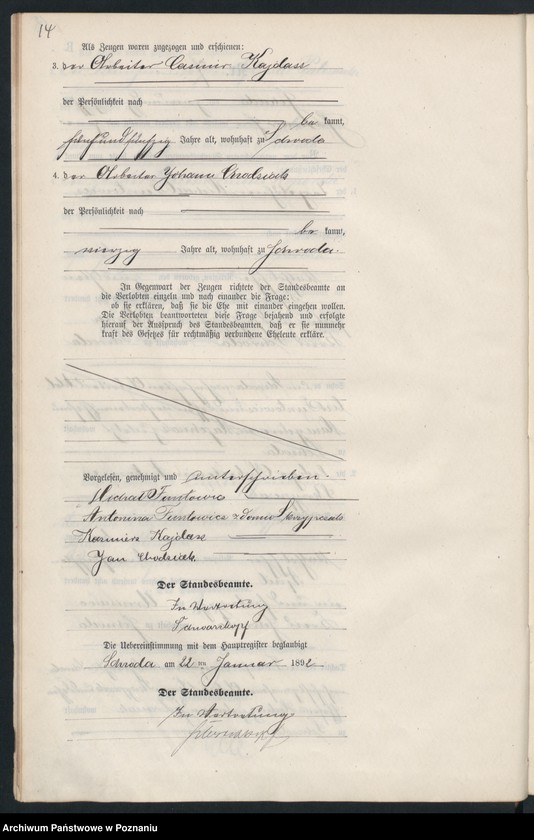 14
Als Zeugen waren zugezogen und erschienen:
3. der Arbeiter Casimir Kajdasz
der Persönlichkeit nach
be kannt,
fünfundfünfzig Jahre alt, wohnhaft zu Schroda
4. der Arbeiter Johann Chodziak
der Persönlichkeit nach
be kannt,
vierzig Jahre alt, wohnhaft zu Schroda.
In Gegenwart der Zeugen richtete der Standesbeamte an
die Verlobten einzeln und nach einander die Frage:
ob sie erklären, daß sie die Ehe mit einander eingehen wollen.
Die Verlobten beantworteten diese Frage bejahend und erfolgte
hierauf der Ausspruch des Standesbeamten, daß er sie nunmehr
kraft des Gesetzes für rechtmäßig verbundene Eheleute erkläre.
Vorgelesen, genehmigt und unterschrieben.
Antonina z domu
Kazmierz Kajdasz
Jan Chodziak
Der Standesbeamte.
In Vertretung
Schwarzkopf
Die Uebereinstimmung mit dem Hauptregister beglaubigt
Schroda am 22 ten Januar 1892
Der Standesbeamte.
In Vertretung
Archiwum Państwowe w Poznaniu